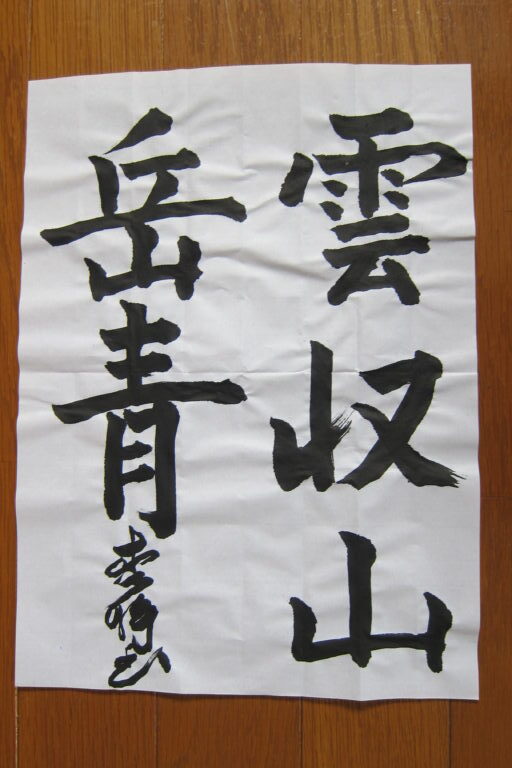 雲収山
岳青